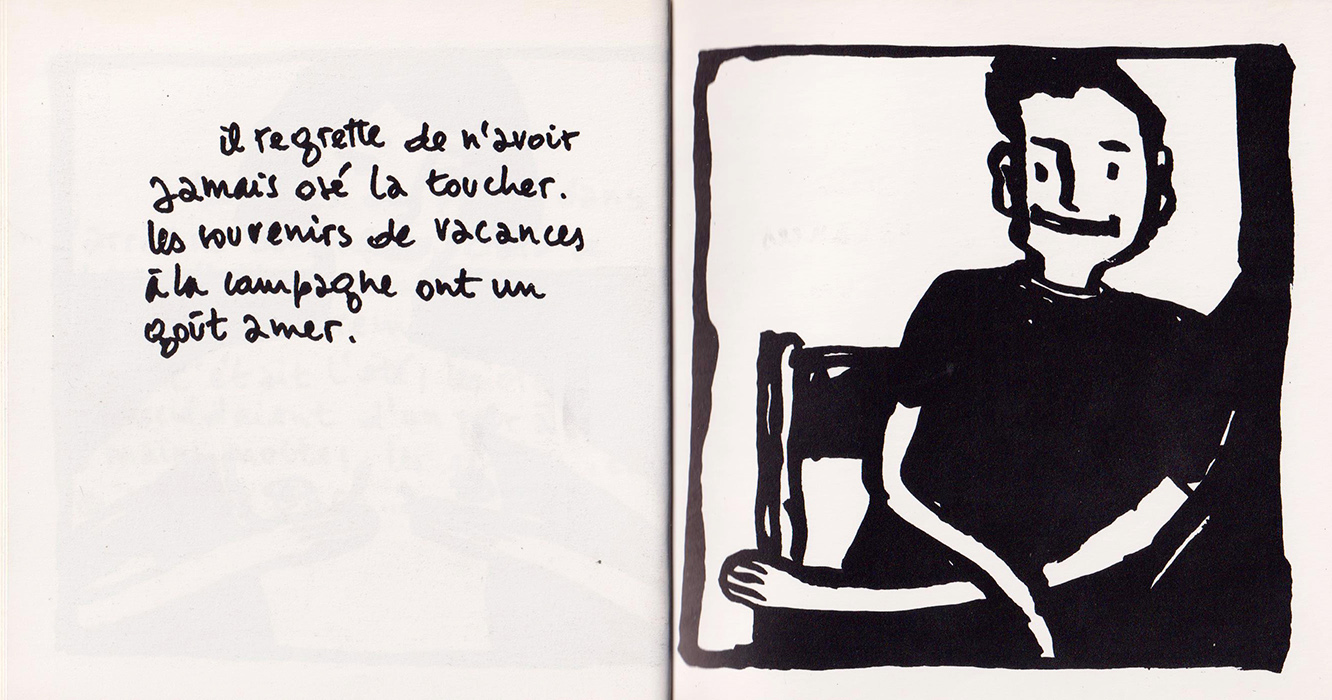 il regrette de n'avoir
jamais osé la toucher.
les souvenirs de vacances
à la campagne ont un
goût amer.